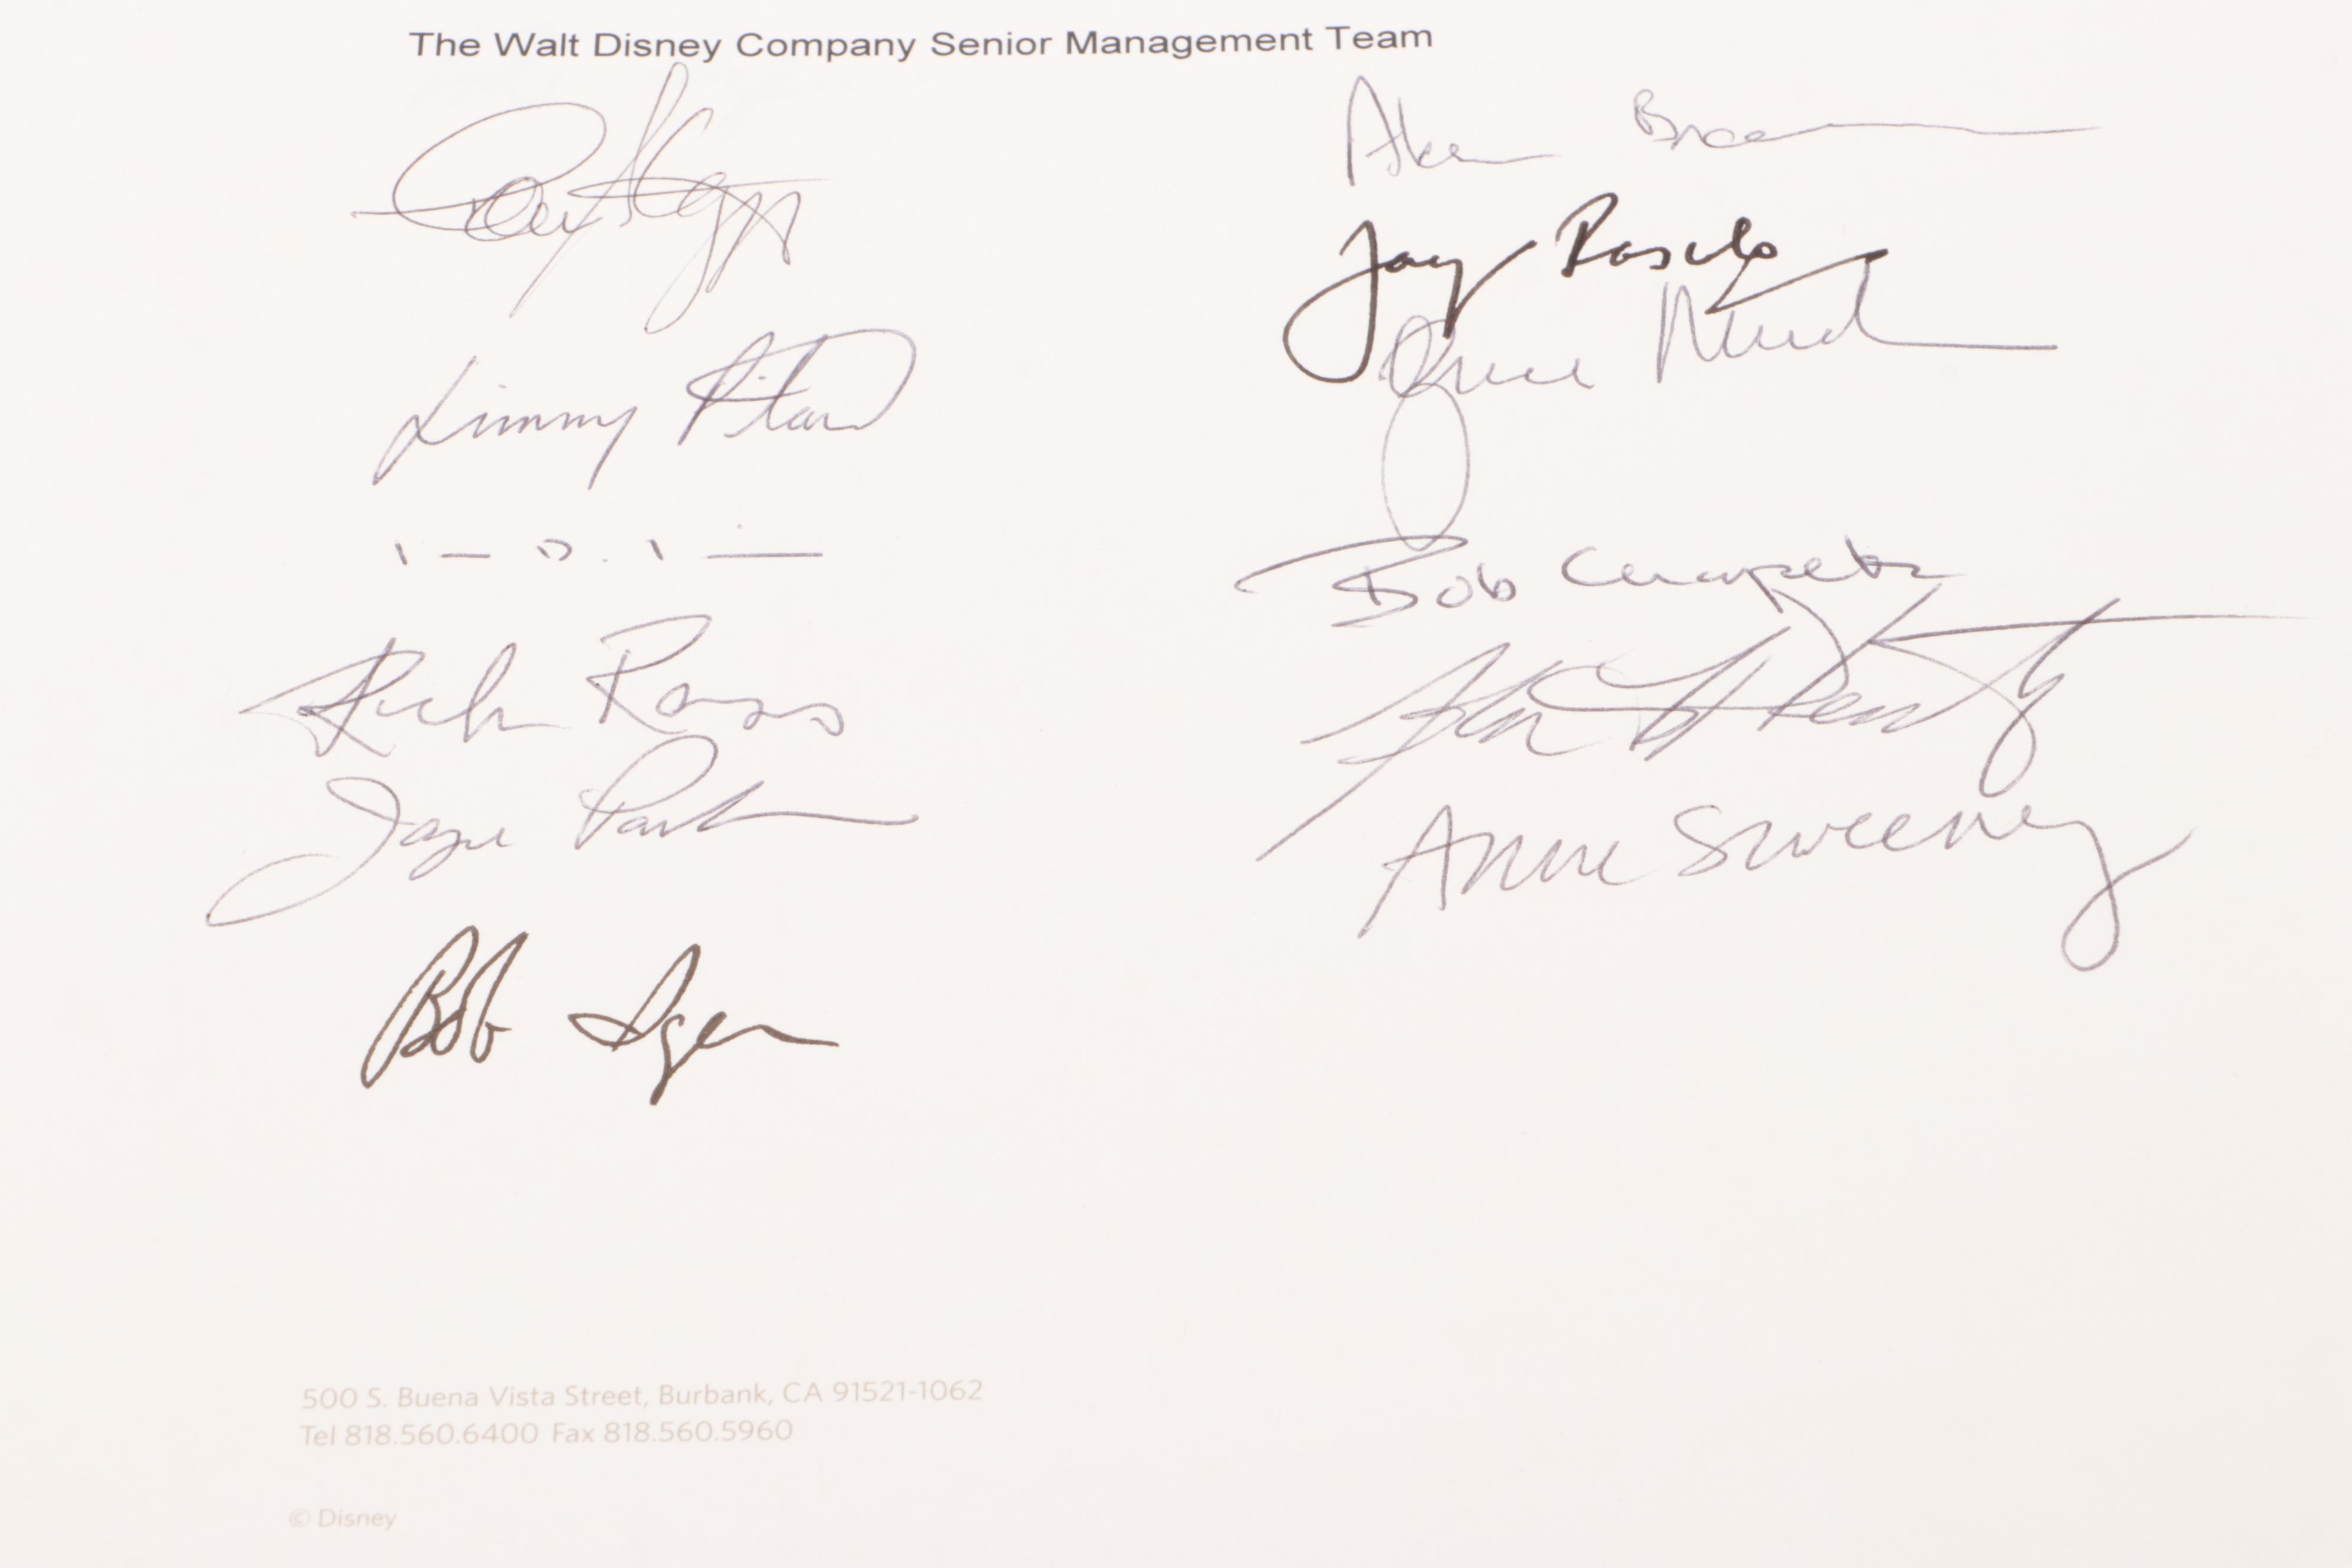 The Walt Disney Company Senior Management Team
Jimmy Pitaro
Rich Ross
Jayne Parker
Bob Iger
Alan Braverman
Jay Rasulo
Bob Chapek
Anne Sweeney
500 S. Buena Vista Street, Burbank, CA 91521-1062
Tel 818.560.6400 Fax 818.560.5960
© Disney